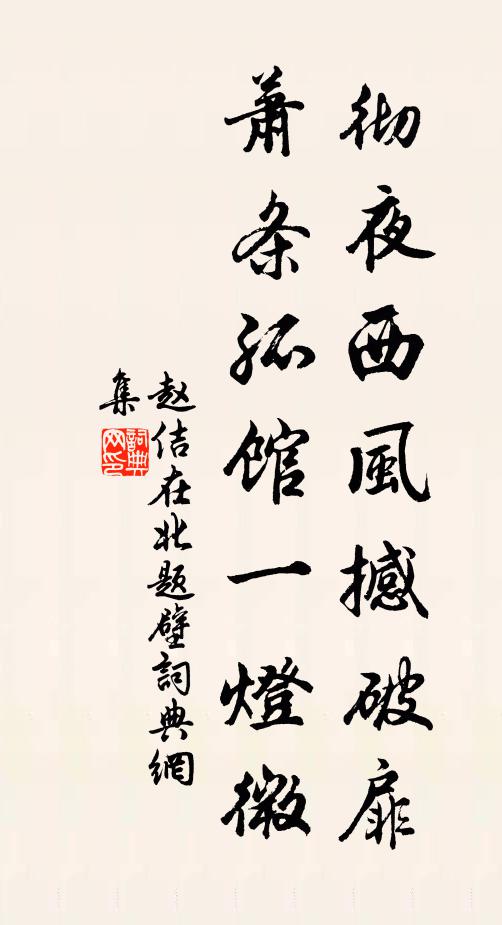 彻夜西風撼破扉
蕭条孤館一燈微
赵佶在北題壁詞典網
集
詞典
网印